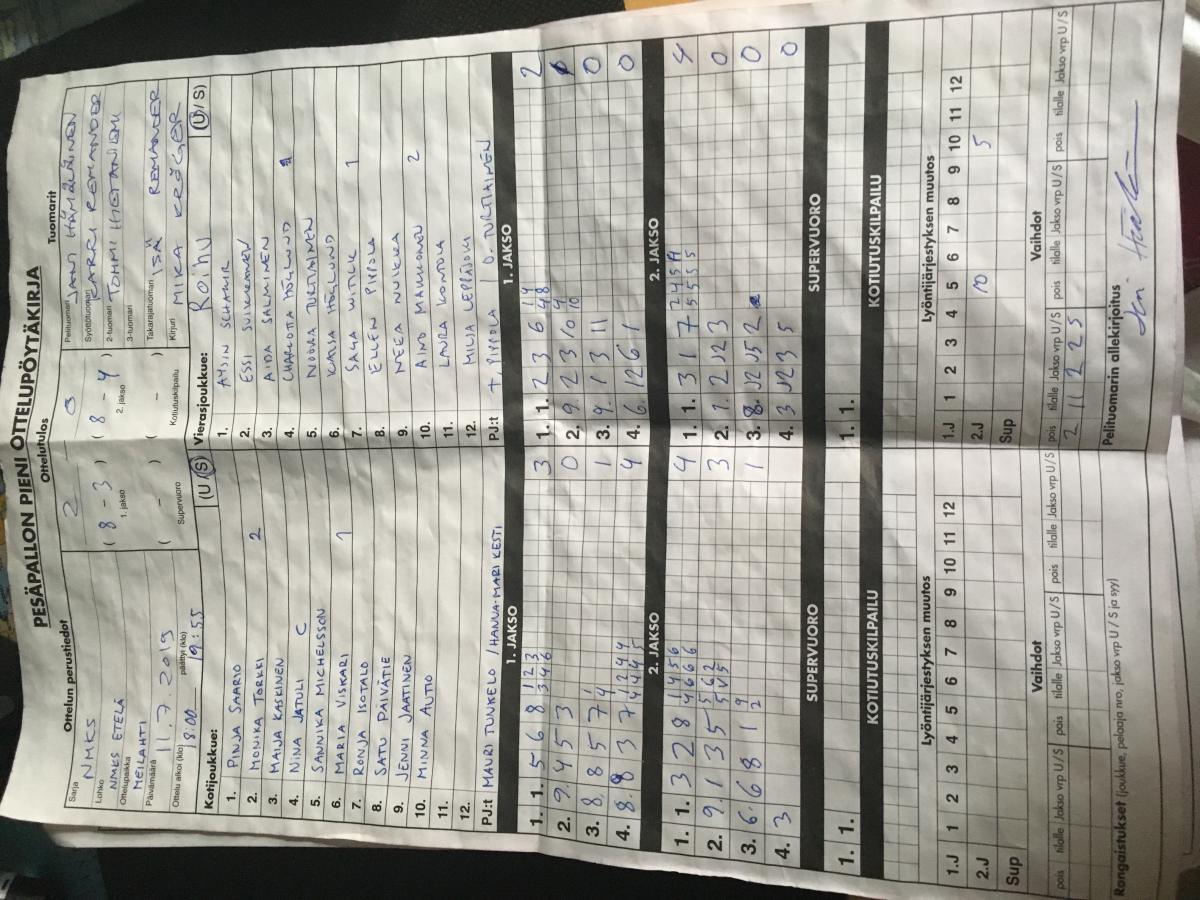 PESÄPALLON PIENI OTTELUPÖYTÄKIRJA
Ottelun perustiedot Ottelutulos Tuomarit
Sarja NMKS
Lohko NMKS ETELÄ
Ottelupaikka MEILAHTI
Päivämäärä 11.7.2019
Ottelu alkoi (klo) 18.00 päättyi (klo) 19:55
2 0
( 8 - 3 ) ( 8 - 4 )
1. jakso 2. jakso
( - ) ( - )
Supervuoro Kotiutuskilpailu
Pelituomari JANI HÄMÄLÄINEN
Syöttötuomari KARRI REMANDER
2-tuomari TOMMI HIETANIEMI
3-tuomari
Takarajatuomari ISÄ REMANDER
Kirjuri MIKA KRÖGER
Kotijoukkue: (U/S)
1. PINJA SAARIO
2. MONIKA TORKKI 2
3. MAIJA KASKINEN
4. NINA JATULI C
5. SANNIKA MICHELSSON
6. MARIA VISKARI 1
7. RONJA ISOTALO
8. SATU PÄIVÄTIE
9. JENNI JAATINEN
10. MINNA AUTIO
11.
12.
PJ:t MAURI TUNKELO / HANNA-MARI KESTI
Vierasjoukkue: Roihu (U/S)
1. AYSIN SCHAHIR
2. ESSI SUIKKANEN
3. AIDA SALMINEN
4. CHARLOTTA HÖGLUND
5. NOORA TURTIAINEN
6. KAISA HÖGLUND
7. SAGA WITICK 1
8. ELLEN PIPPOLA
9. NEEA NUKKA
10. AINO MAUKONEN 2
11. LAURA KONTOLA
12. MILJA LEPPÄJOKI
PJ:t T. PIPPOLA / O. TURTIAINEN
1. JAKSO 1. JAKSO
1. 1. 5 6 8 3
2. 9. 4 5 3 0
3. 8 8 5 7 1
4. 8. 8 3 7 4
1. 1. 2 3 6 2
2. 9. 2 3 10
3. 9. 1 3 11 0
4. 6. 12 6 1 0
2. JAKSO 2. JAKSO
1. 1. 3 2 8 4
2. 9. 1 3 5 3
3. 6. 6 8 1 1
4. 3
1. 1. 3 1 7 4
2. 1. 2 J2 3 0
3. 8. J2 J5 2 0
4. 3 J2 3 5 0
SUPERVUORO SUPERVUORO
1. 1. 1. 1.
KOTIUTUSKILPAILU KOTIUTUSKILPAILU
Lyöntijärjestyksen muutos Lyöntijärjestyksen muutos
1.J 1 2 3 4 5 6 7 8 9 10 11 12
2.J
Sup
1.J 1 2 3 4 5 6 7 8 9 10 11 12
2.J 10 5
Sup
Vaihdot Vaihdot
pois tilalle Jakso vrp U/S pois tilalle Jakso vrp U/S pois tilalle Jakso vrp U/S
pois tilalle Jakso vrp U/S pois tilalle Jakso vrp U/S pois tilalle Jakso vrp U/S
2 11 2 2 5
Rangaistukset (joukkue, pelaaja nro, jakso vrp U/S ja syy)
Pelituomarin allekirjoitus